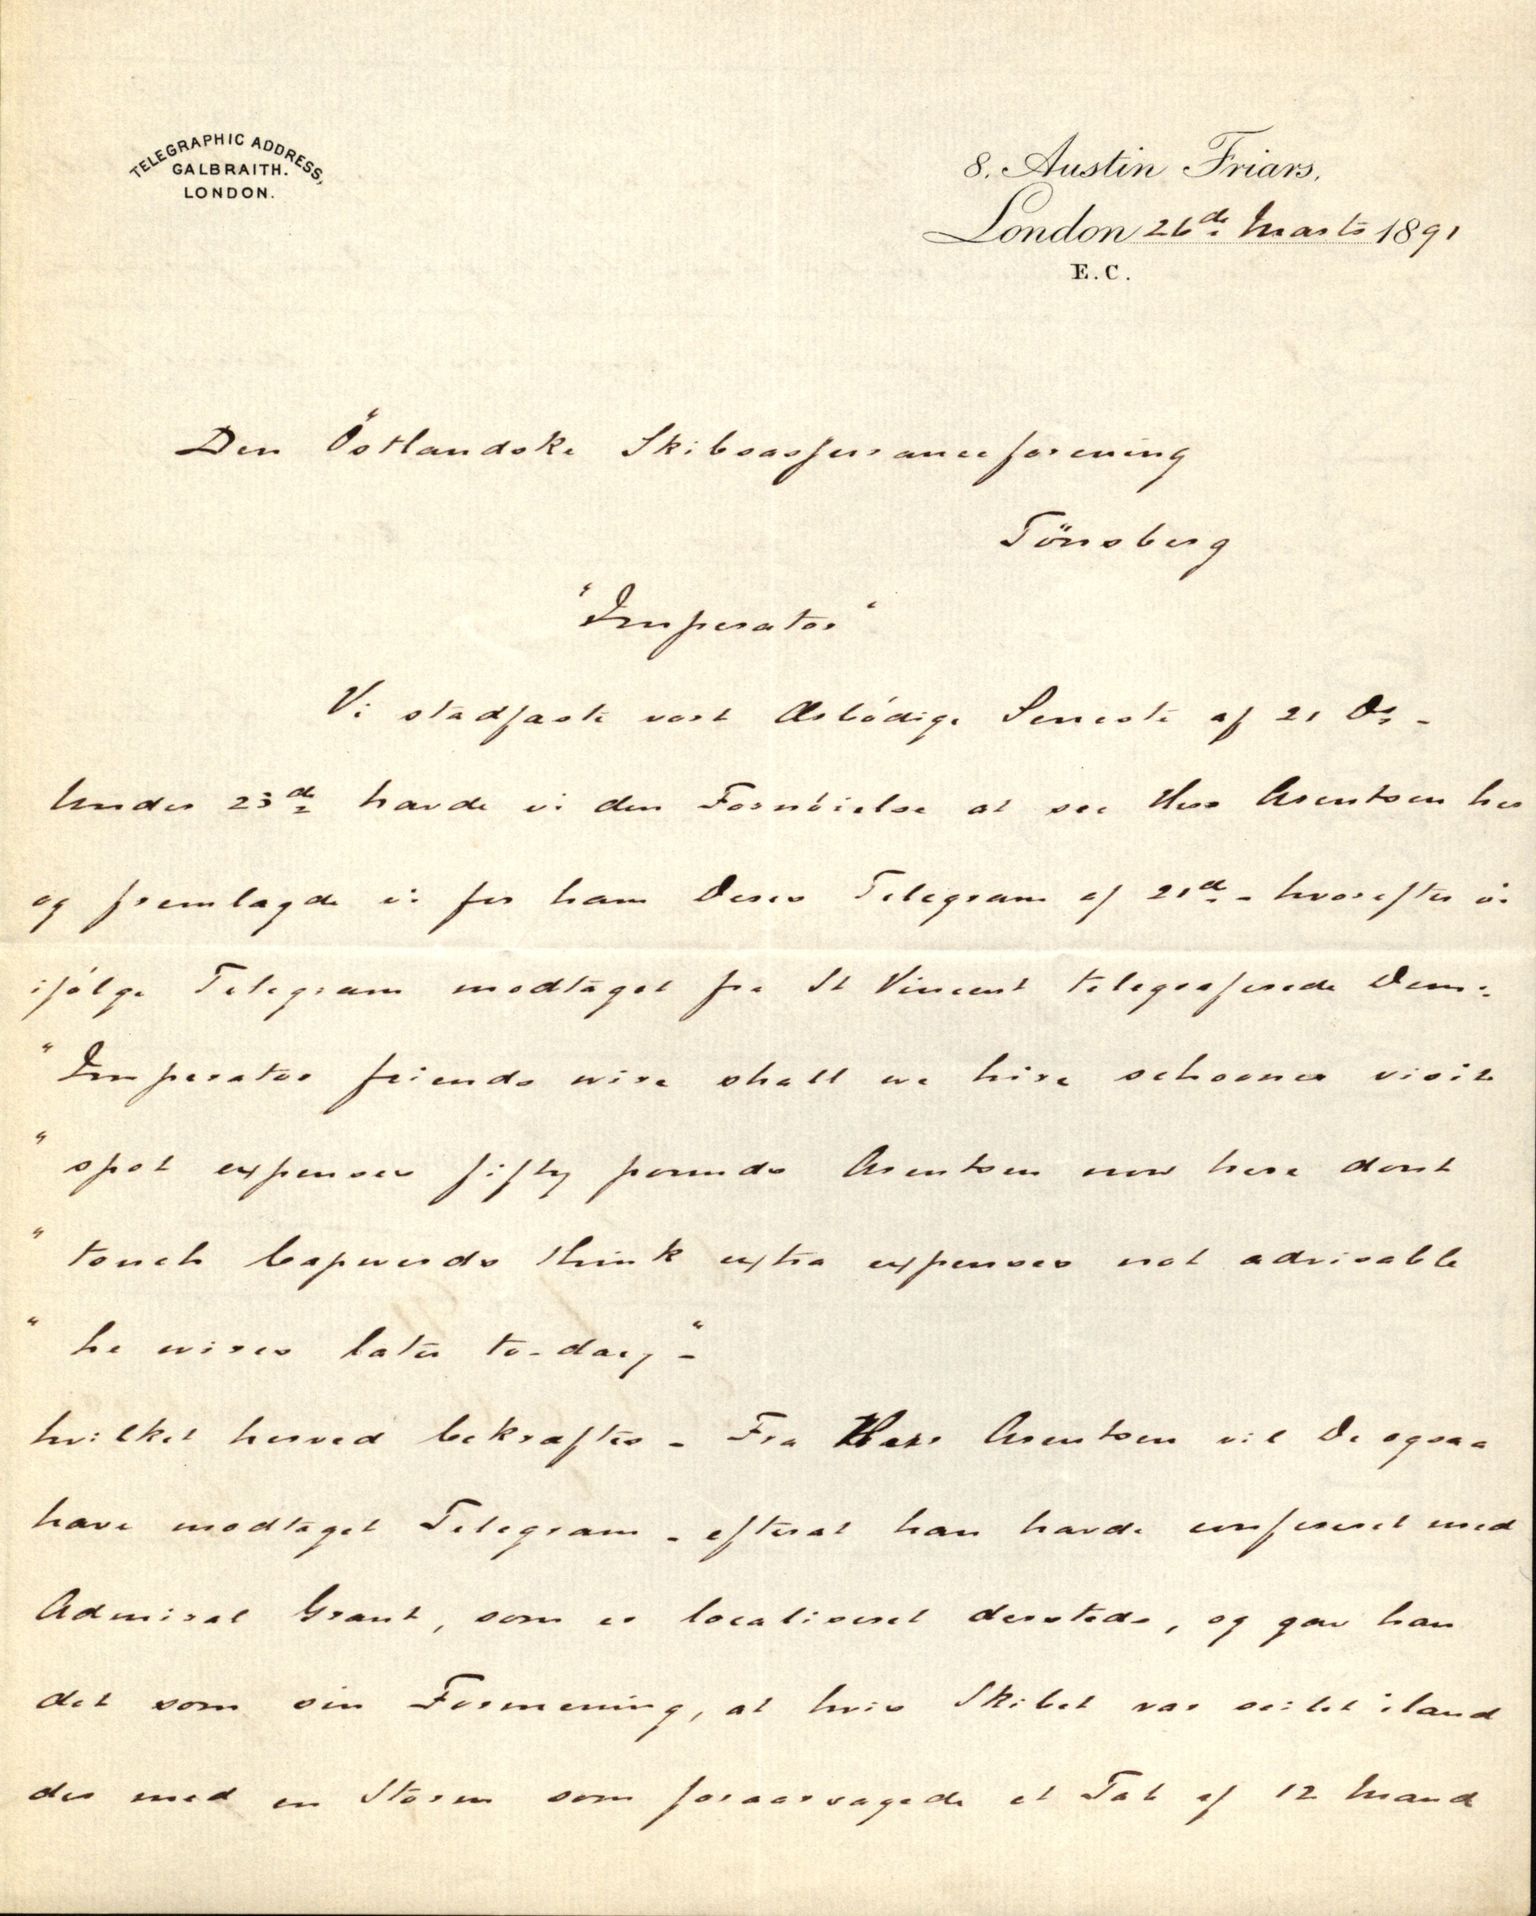 TELEGRAPHIC ADDRESS,
GALBRAITH.
LONDON.
8. Austin Friars,
London 26de Marts 1891
E.C.
Den Östlandske Skibsassuranceforening
Tönsberg
"Imperator"
Vi stadfæste vort Ærbödige Seneste af 21 Ds. -
Under 23de havde vi den Fornöielse at see Herr Arentsen her
og fremlagde vi for ham Deres Telegram af 21de - hvorefter vi
ifölge Telegram modtaget fra St Vincent telegraferede Dem:
" Imperator friends wire shall we hire schooner visit
" spot expenses fifty pounds Arentsen now here dont
" touch Capverds think extra expenses not advisable
" he wires later to-day" -
hvilket herved bekræftes - Fra Herr Arentsen vil De ogsaa
have modtaget Telegram - efterat han havde confereret med
Admiral Grant, som er localiseret dersteds, og gav han
det som sin Formening, at hvis Skibet var seilet iland
der med en Storm som foraarsagede et Tab af 12 Mand